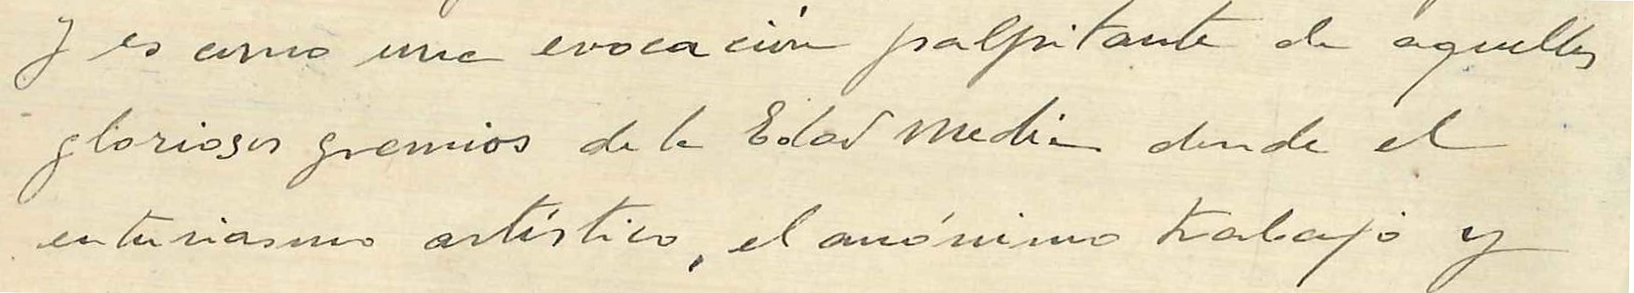 Y es como una evocación palpitante de aquellos
gloriosos gremios de la Edad Media donde el
entusiasmo artístico, el anónimo trabajo y